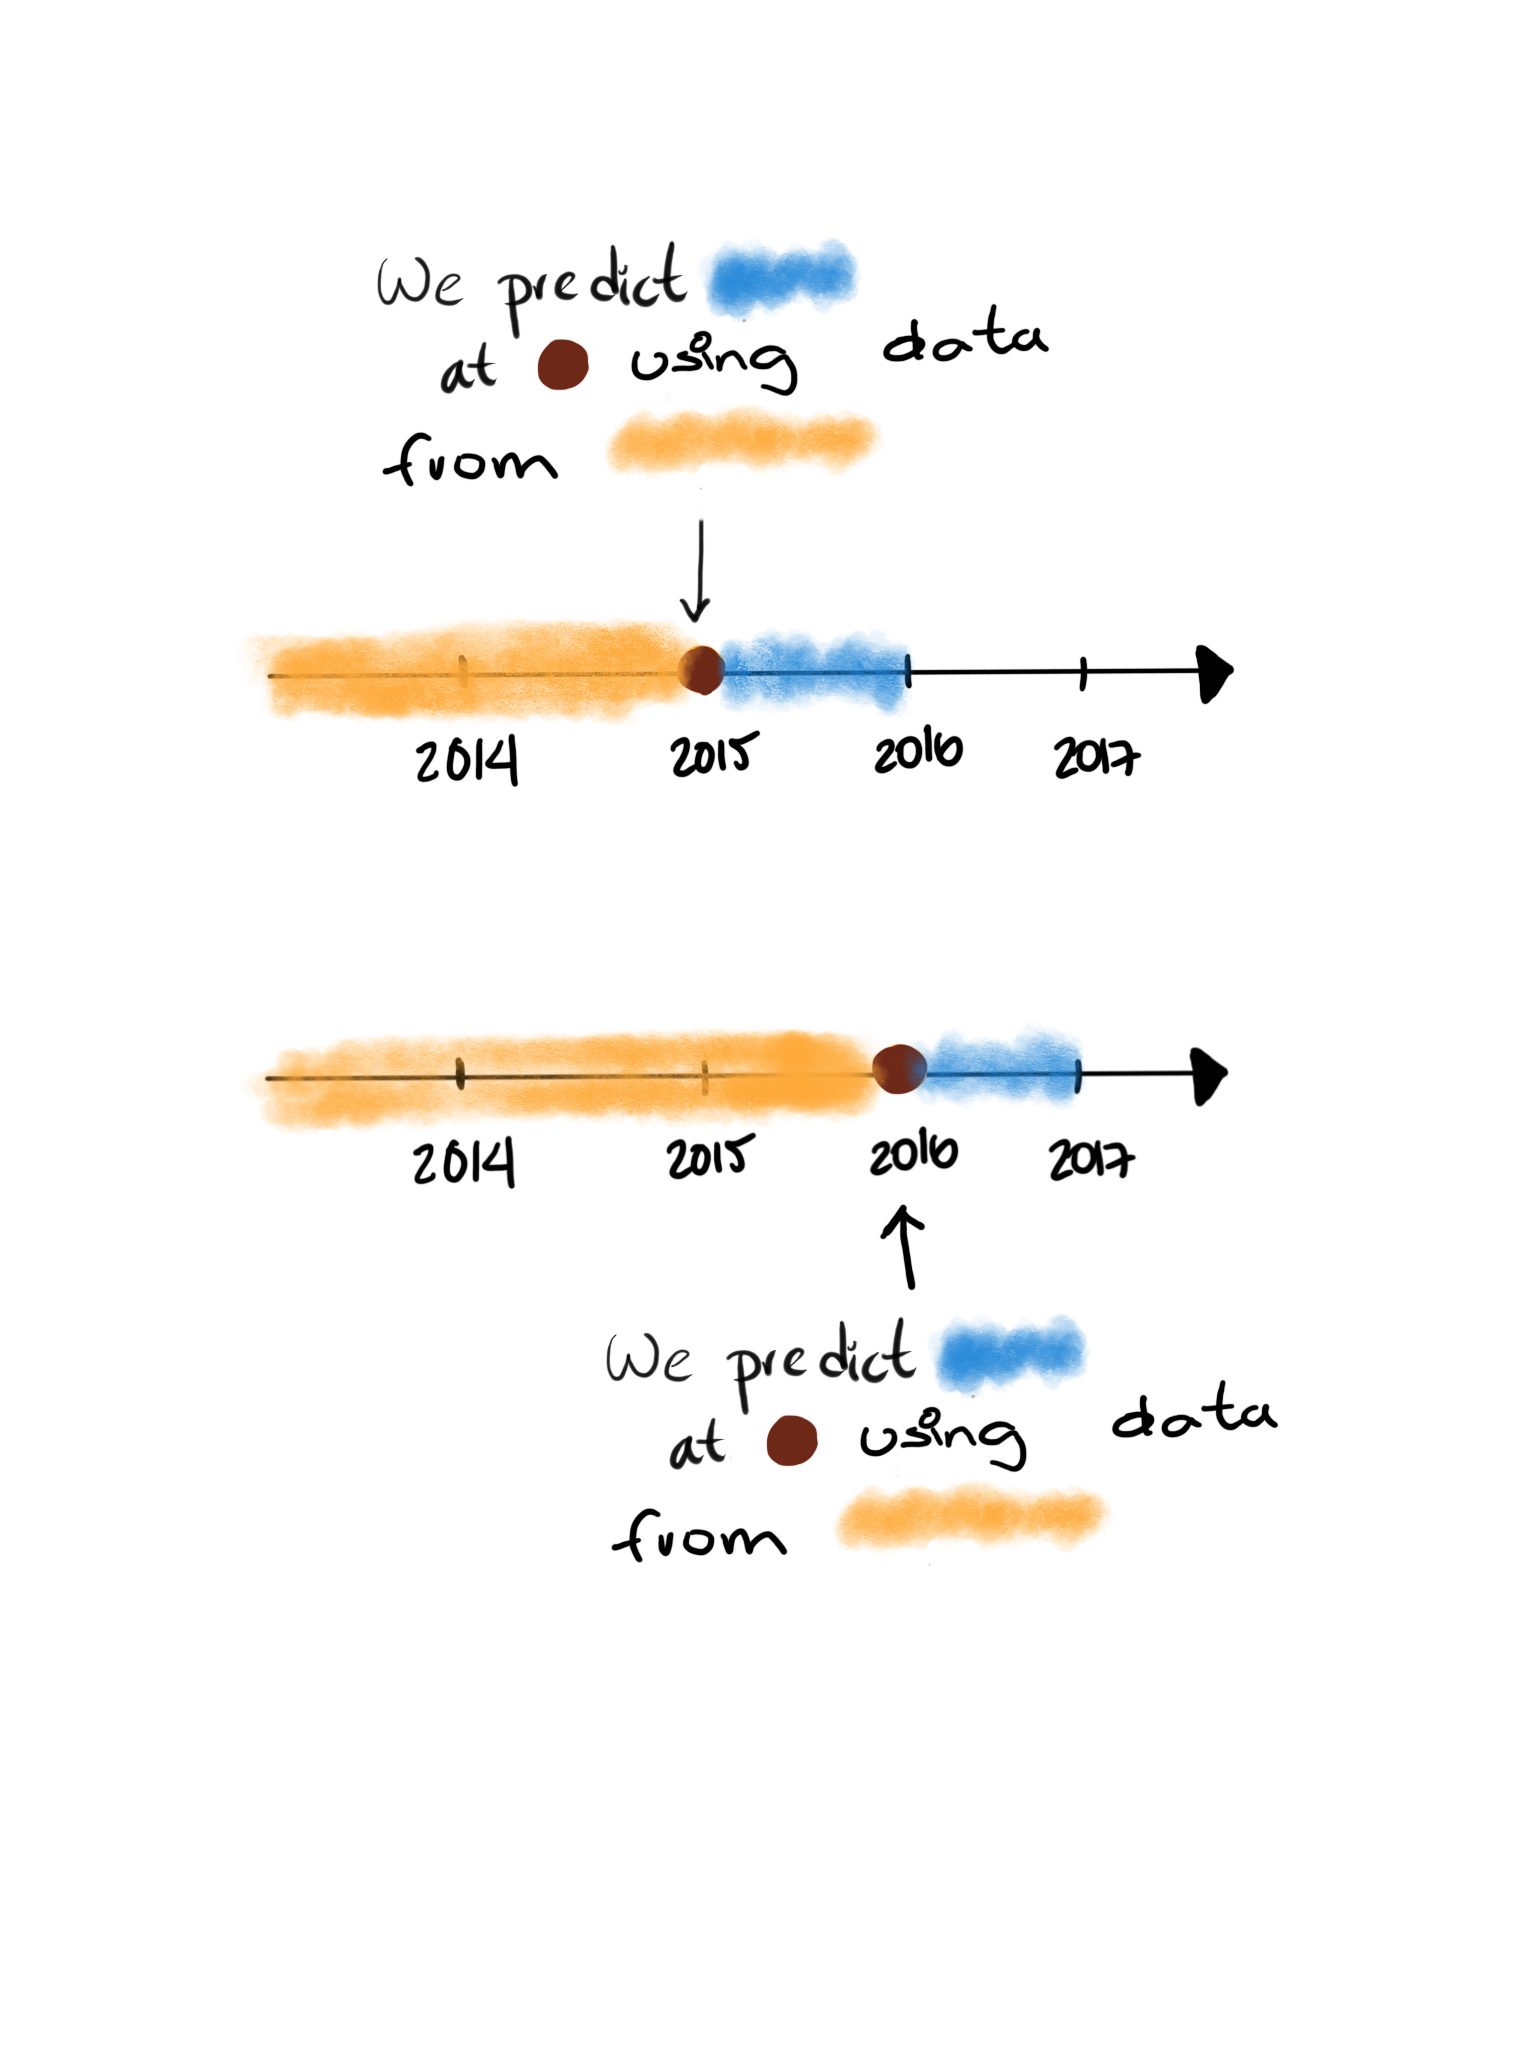 We predict
at using data
from
2014 2015 2016 2017
2014 2015 2016 2017
We predict
at using data
from